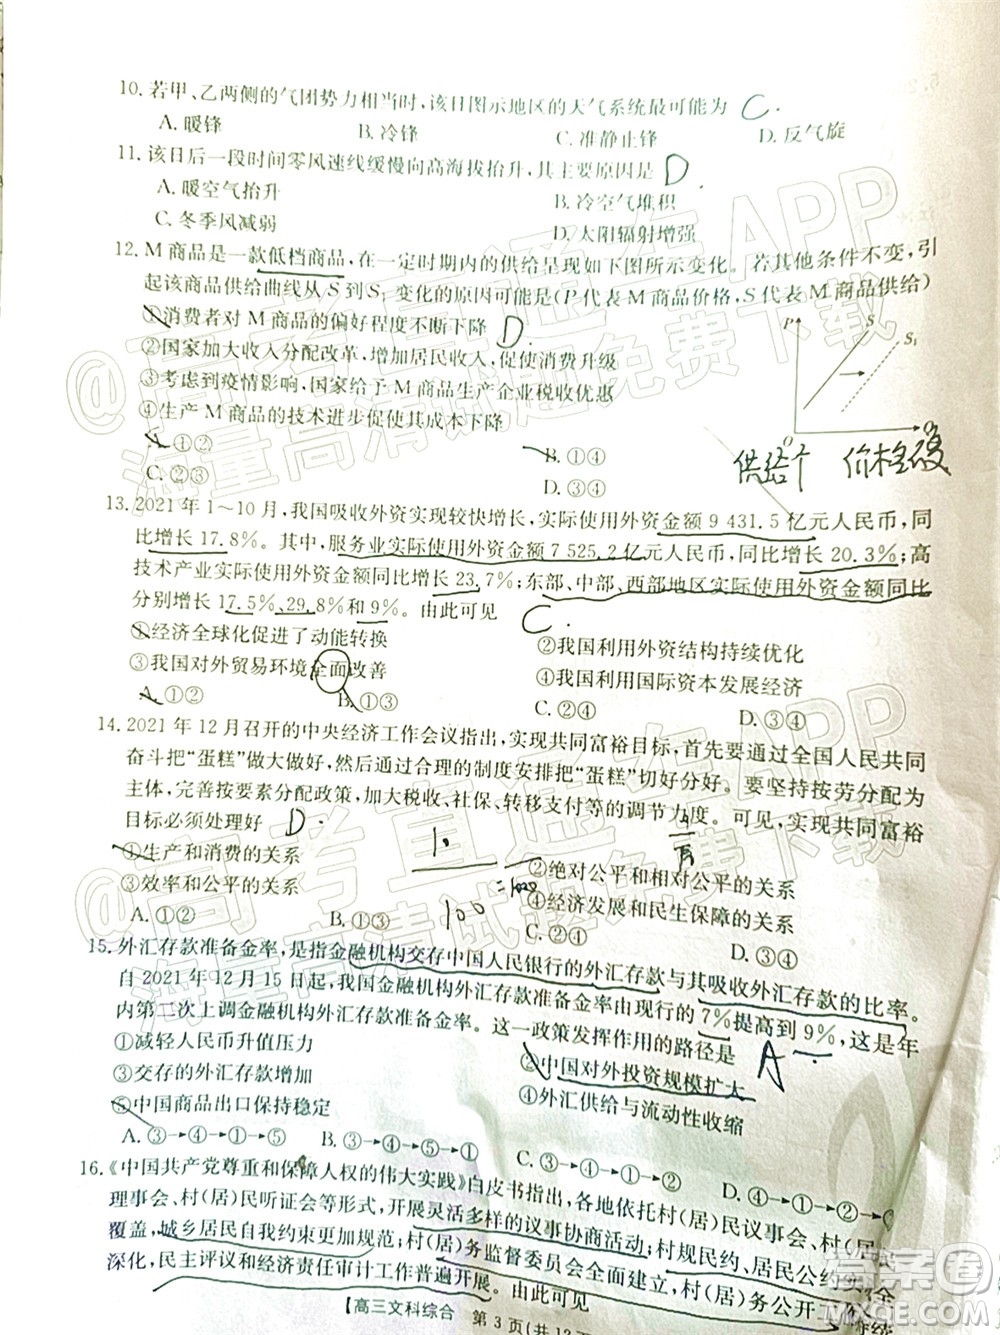 10. 若甲、乙两侧的气团势力相当时,该日图示地区的天气系统最可能为 C.
A. 暖锋 B. 冷锋 C. 准静止锋 D. 反气旋
11. 该日后一段时间零风速线缓慢向高海拔抬升,其主要原因是 D.
A. 暖空气抬升 B. 冷空气堆积
C. 冬季风减弱 D. 太阳辐射增强
12. M 商品是一款低档商品,在一定时期内的供给呈现如下图所示变化。若其他条件不变,引
起该商品供给曲线从 S 到 S₁ 变化的原因可能是(P 代表 M 商品价格,S 代表 M 商品供给)
①消费者对 M 商品的偏好程度不断下降 D.
②国家加大收入分配改革,增加居民收入,促使消费升级
③考虑到疫情影响,国家给于 M 商品生产企业税收优惠
④生产 M 商品的技术进步促使其成本下降
A. ①② B. ①④
C. ②③ D. ③④
P S S₁ O Q
供给个 价格
13. 2021 年 1～10 月,我国吸收外资实现较快增长,实际使用外资金额 9 431.5 亿元人民币,同
比增长 17.8%。其中,服务业实际使用外资金额 7 525.2 亿元人民币,同比增长 20.3%;高
技术产业实际使用外资金额同比增长 23.7%;东部、中部、西部地区实际使用外资金额同比
分别增长 17.5%、29.8%和 9%。由此可见 C.
①经济全球化促进了动能转换 ②我国利用外资结构持续优化
③我国对外贸易环境全面改善 ④我国利用国际资本发展经济
A. ①② B. ①③ C. ②④ D. ③④
14. 2021 年 12 月召开的中央经济工作会议指出,实现共同富裕目标,首先要通过全国人民共同
奋斗把“蛋糕”做大做好,然后通过合理的制度安排把“蛋糕”切好分好。要坚持按劳分配为
主体,完善按要素分配政策,加大税收、社保、转移支付等的调节力度。可见,实现共同富裕
目标必须处理好 D.
①生产和消费的关系 ②绝对公平和相对公平的关系
③效率和公平的关系 ④经济发展和民生保障的关系
A. ①② B. ①③ C. ②④ D. ③④
15. 外汇存款准备金率,是指金融机构交存中国人民银行的外汇存款与其吸收外汇存款的比率。
自 2021 年 12 月 15 日起,我国金融机构外汇存款准备金率由现行的 7%提高到 9%,这是年
内第二次上调金融机构外汇存款准备金率。这一政策发挥作用的路径是 A
①减轻人民币升值压力 ②中国对外投资规模扩大
③交存的外汇存款增加 ④外汇供给与流动性收缩
⑤中国商品出口保持稳定
A. ③→④→①→⑤ B. ③→④→⑤→① C. ③→④→①→② D. ④→③→①→②
16. 《中国共产党尊重和保障人权的伟大实践》白皮书指出,各地依托村(居)民议事会、村(居)民
理事会、村(居)民听证会等形式,开展灵活多样的议事协商活动;村规民约、居民公约实现全
覆盖,城乡居民自我约束更加规范;村(居)务监督委员会全面建立,村(居)务公开
深化,民主评议和经济责任审计工作普遍开展。由此可见
【高三文科综合 第 3 页(共 12
@高考直通车APP
海量高清试题免费下载
@高考直通车APP
海量高清试题免费下载
答案圈